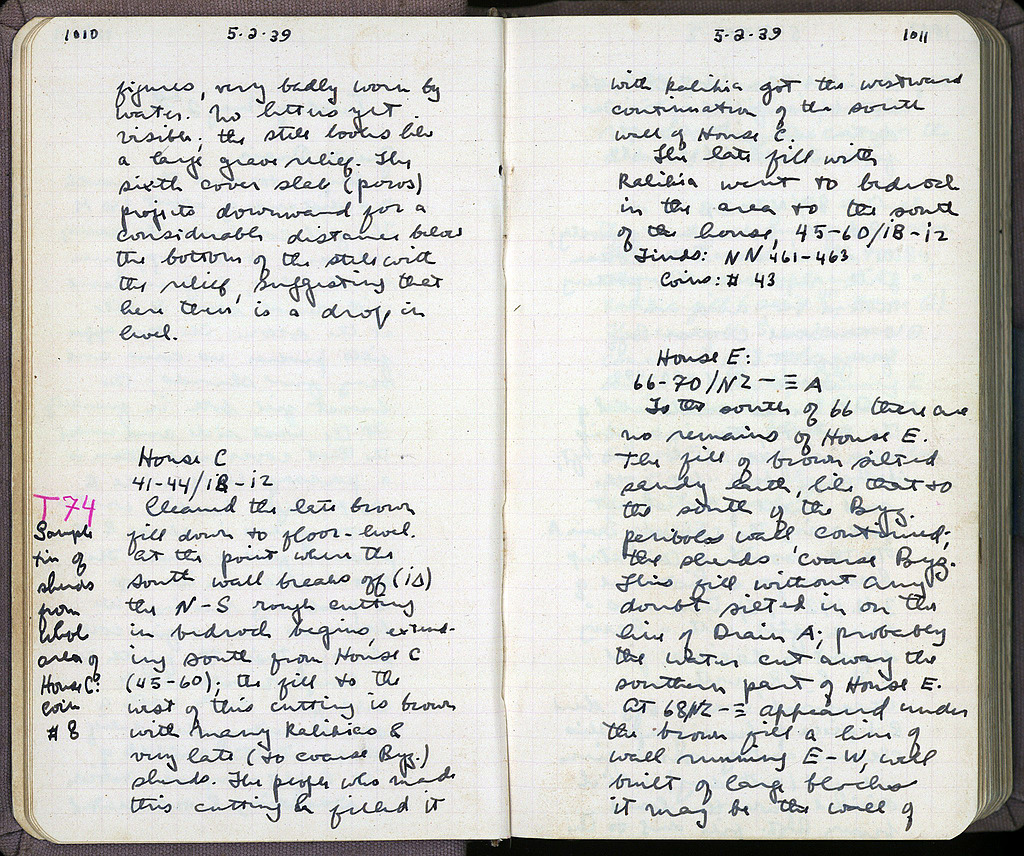 1010
5-2-39
figures, very badly worn by
water. No letters yet
visible; the stele looks like
a large grave relief. The
sixth cover slab (poros)
projects downward for a
considerable distance below
the bottom of the stele with
the relief, suggesting that
here there is a drop in
level.
House C
41-44/ΙΒ-ΙΖ
T 74
Sample
tin of
sherds
from
whole
area of
House C:
coin
# 8
Cleaned the late brown
fill down to floor-level.
At the point where the
south wall breaks off (ΙΔ)
the N-S rough cutting
in bedrock begins, extend-
ing south from House C
(45-60); the fill to the
west of this cutting is brown
with many Kalikia &
very late (to coarse Byz.)
sherds. The people who made
this cutting & filled it
5-2-39
1011
with Kalikia got the westward
continuation of the south
wall of House C.
The late fill with
Kalikia went to bedrock
in the area to the south
of the house, 45-60/ΙΒ-ΙΖ
Finds: NN 461-463
Coins: # 43
House E:
66-70/ΝΖ-Ξ Α
To the south of 66 there are
no remains of House E.
The fill of brown silted
sandy earth, like that to
the south of the Byz.
peribolos wall continued;
the sherds coarse Byz.
This fill without any
doubt silted in on the
line of Drain A; probably
the water cut away the
southern part of House E.
At 68/ΝΖ-Ξ appeared under
the brown fill a line of
wall running E-W, well
built of large blocks
it may be the wall of